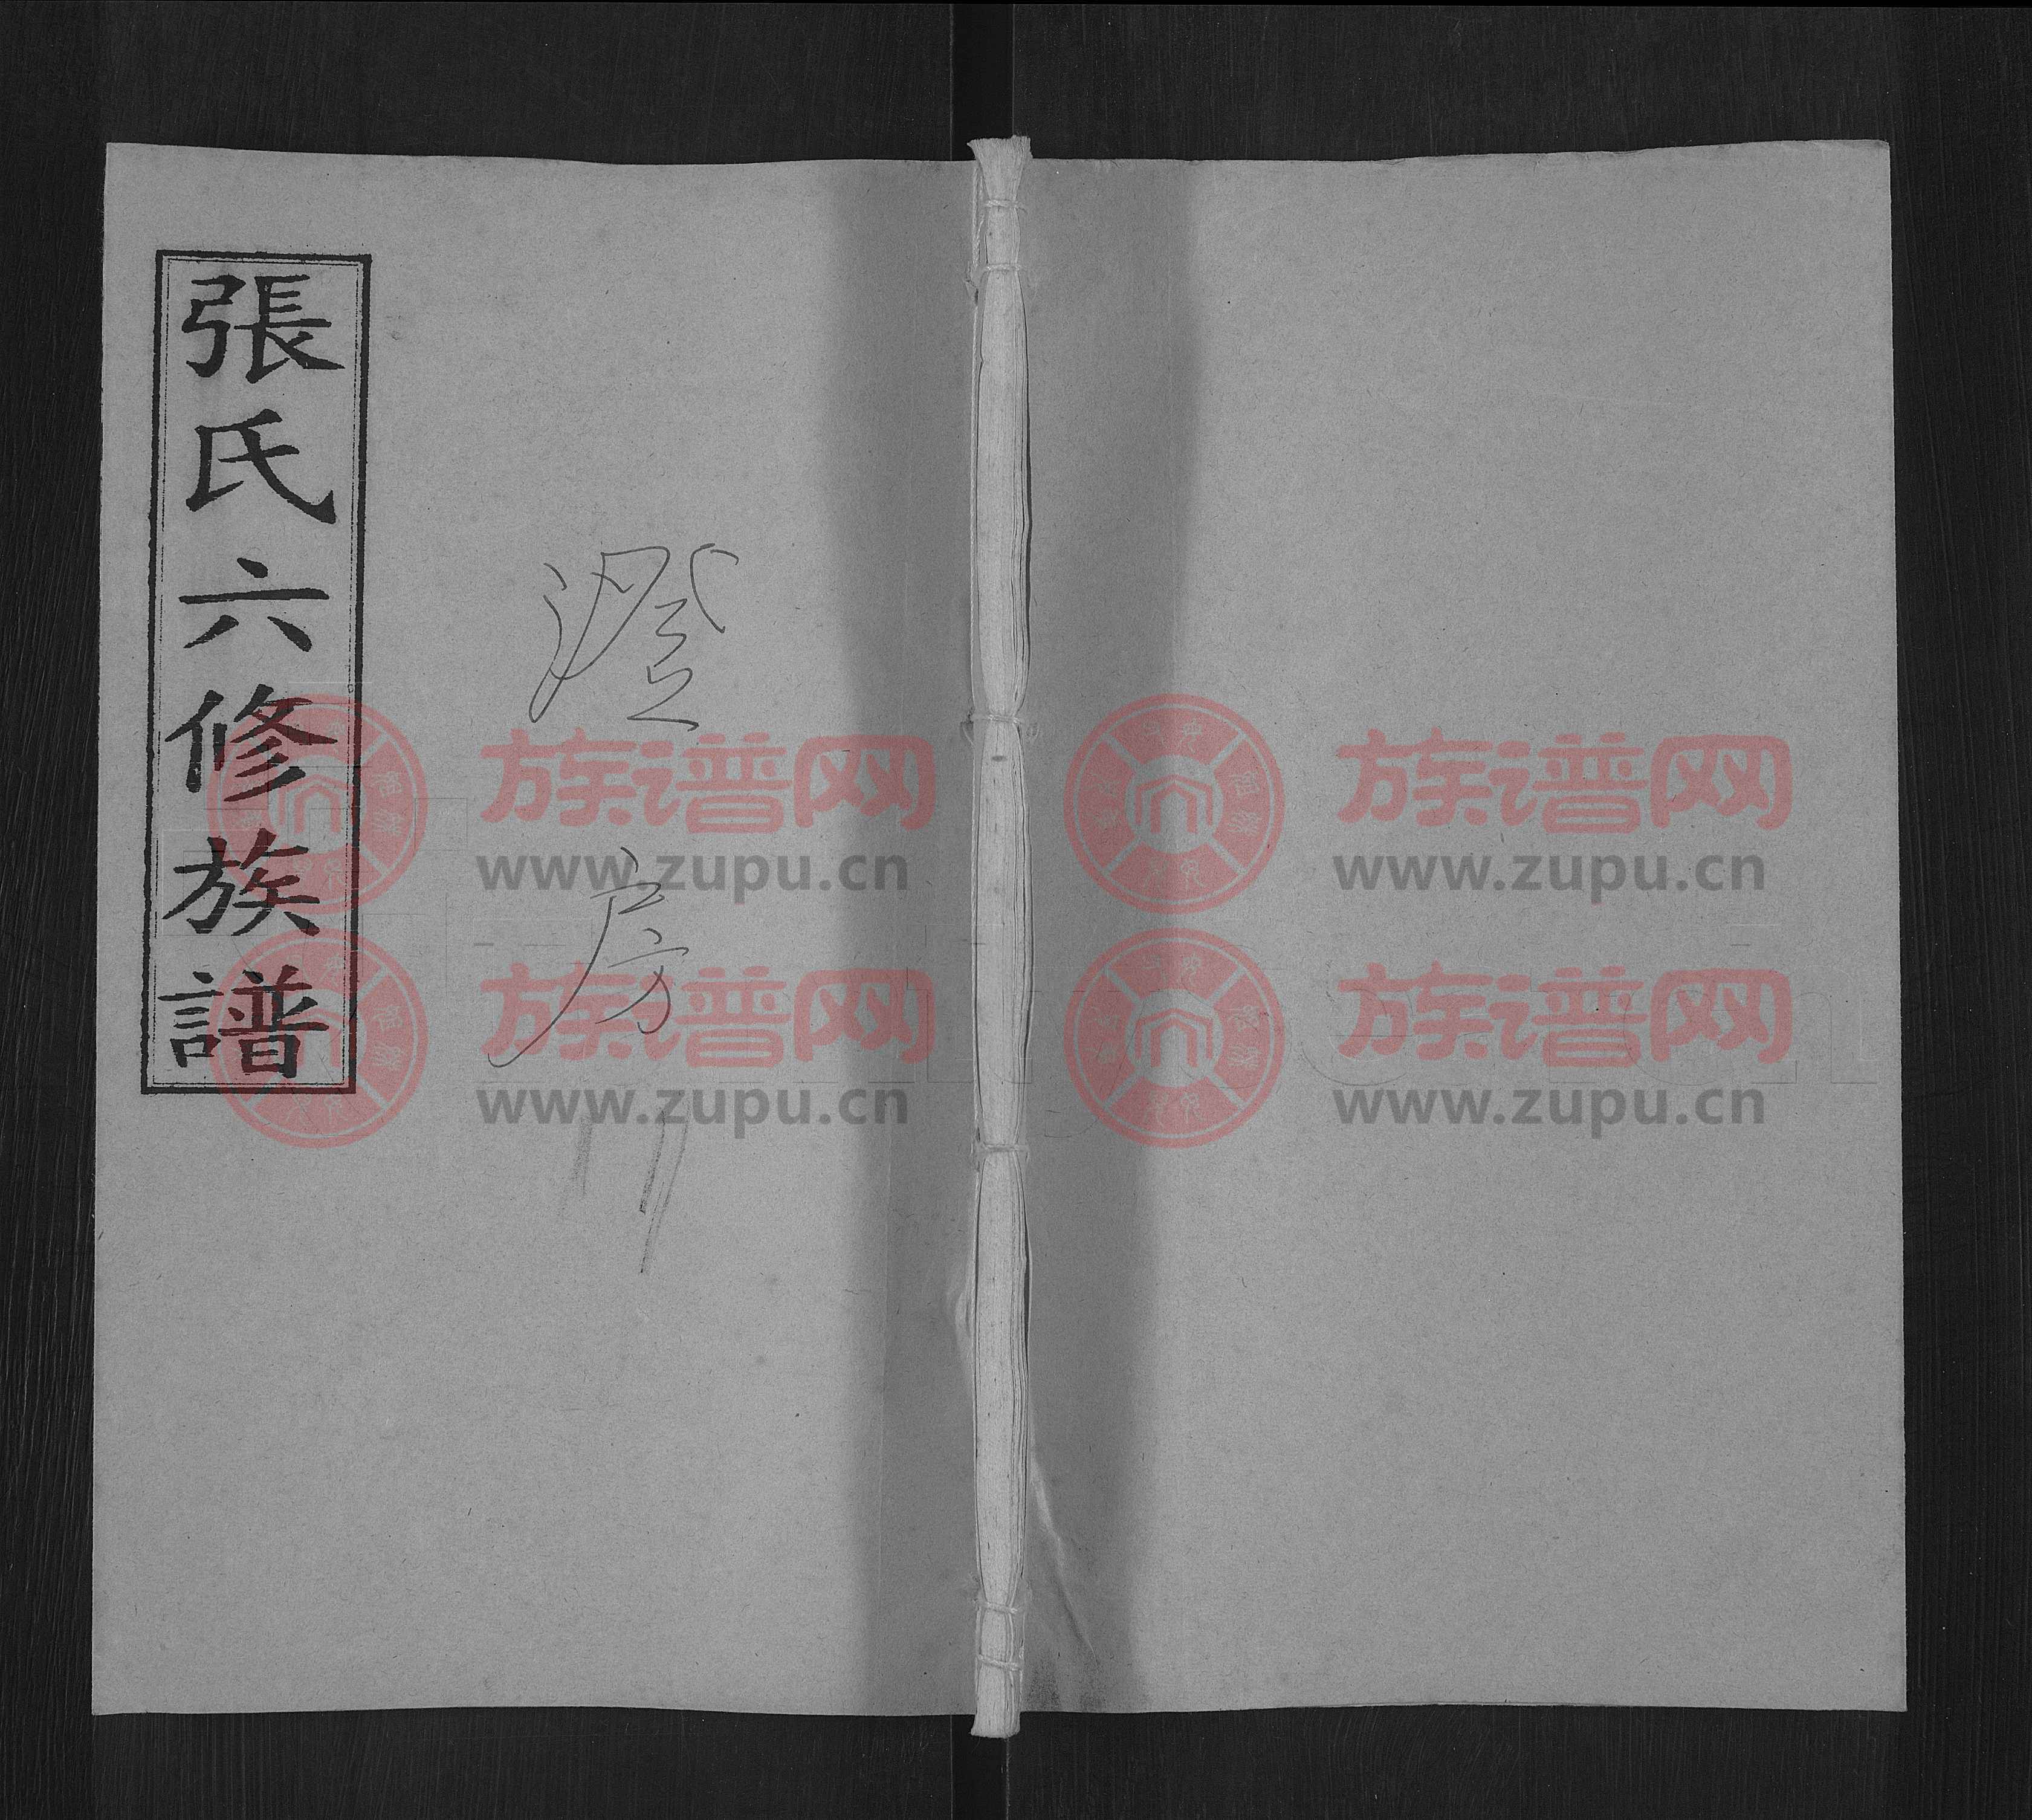 張氏六修族譜
澄房
族谱网
www.zupu.cn
族谱网
www.zupu.cn
族谱网
www.zupu.cn
族谱网
www.zupu.cn